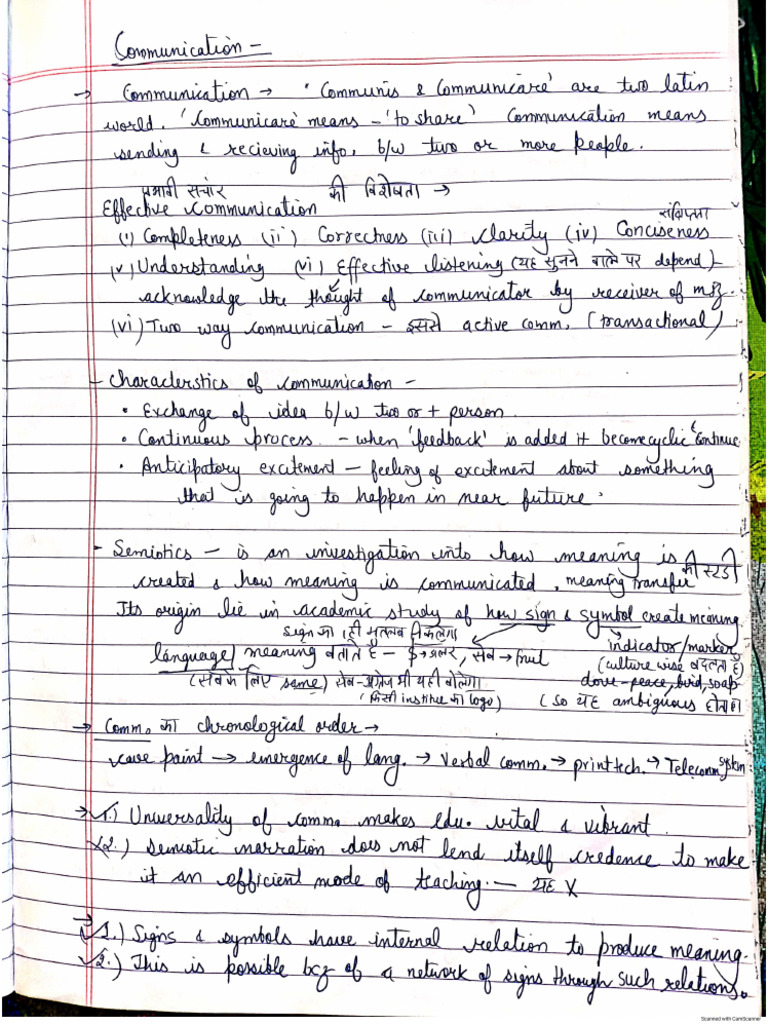 Communication -
→ Communication → 'Communis & Communicare' are two latin
world. 'Communicare' means - 'to share' Communication means
sending & recieving info. b/w two or more people.
प्रभावी संचार की विशेषता →
Effective Communication
(i) Completeness (ii) Correctness (iii) Clarity (iv) Conciseness
(v) Understanding (vi) Effective listening (यह सुनने वाले पर depend) -
acknowledge the thought of communicator by receiver of msg.
(vi) Two way communication - इससे active comm. (transactional)
- Characterstics of communication -
• Exchange of idea b/w two or + person.
• Continuous process. - when 'feedback' is added it become cyclic & continue.
• Anticipatory excitement - feeling of excitement about something
that is going to happen in near future.
- Semiotics - is an investigation into how meaning is की स्टडी
created & how meaning is communicated, meaning transfer
Its origin lie in academic study of how sign & symbol create meaning.
sign का ही मतलब निकलेगा
indicator/marker
language) meaning बताते है - सेब → fruit
(culture wise बदलता है)
(सबके लिए same) सेब - अंग्रेज भी यही बोलेगा
dove-peace, bird, soap
(किसी institue का logo) (so यह ambiguous होता है)
→ Comm. का chronological order →
cave paint → emergence of lang. → verbal comm. → print tech. → Telecomm system
→ ✓1.) Universality of comm. makes edu. vital & vibrant.
X2.) Semiotic narration does not lend itself credence to make
it an efficient mode of teaching. - यह X
→ ✓1.) Signs & symbols have internal relation to produce meaning.
✓2.) This is possible bcz of a network of signs through such relations.
Scanned with CamScanner